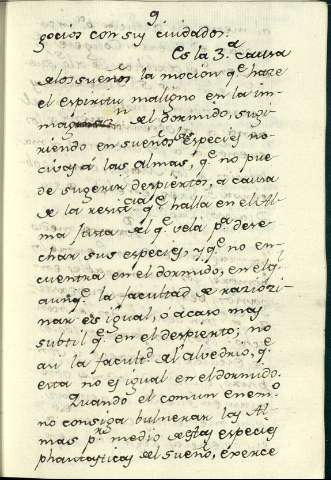 9.
gocios con sus cuidados.
Es la 3.a causa
de los sueños la mocion qe haze
el espiritu maligno en la im-
magn del dormido, sugi-
riendo en sueños las especies no-
civas á las almas, qe no pue-
de sugerir despiertos, a causa
de la resistencia qe halla en el Al-
ma desta el qe vela pa dese-
char sus especies, y qe no en-
cuentra en el dormido, en el q
aunqe la facultad de raziozi-
nar es igual, ó acaso mas
subtil qe en el despierto; no
asi la facultd del alvedrio, qe
esta no es igual en el dormido.
Quando el comun enemo
no consiga bulnerar las Al-
mas pr medio destas especies
phantasticas del sueño, exerce